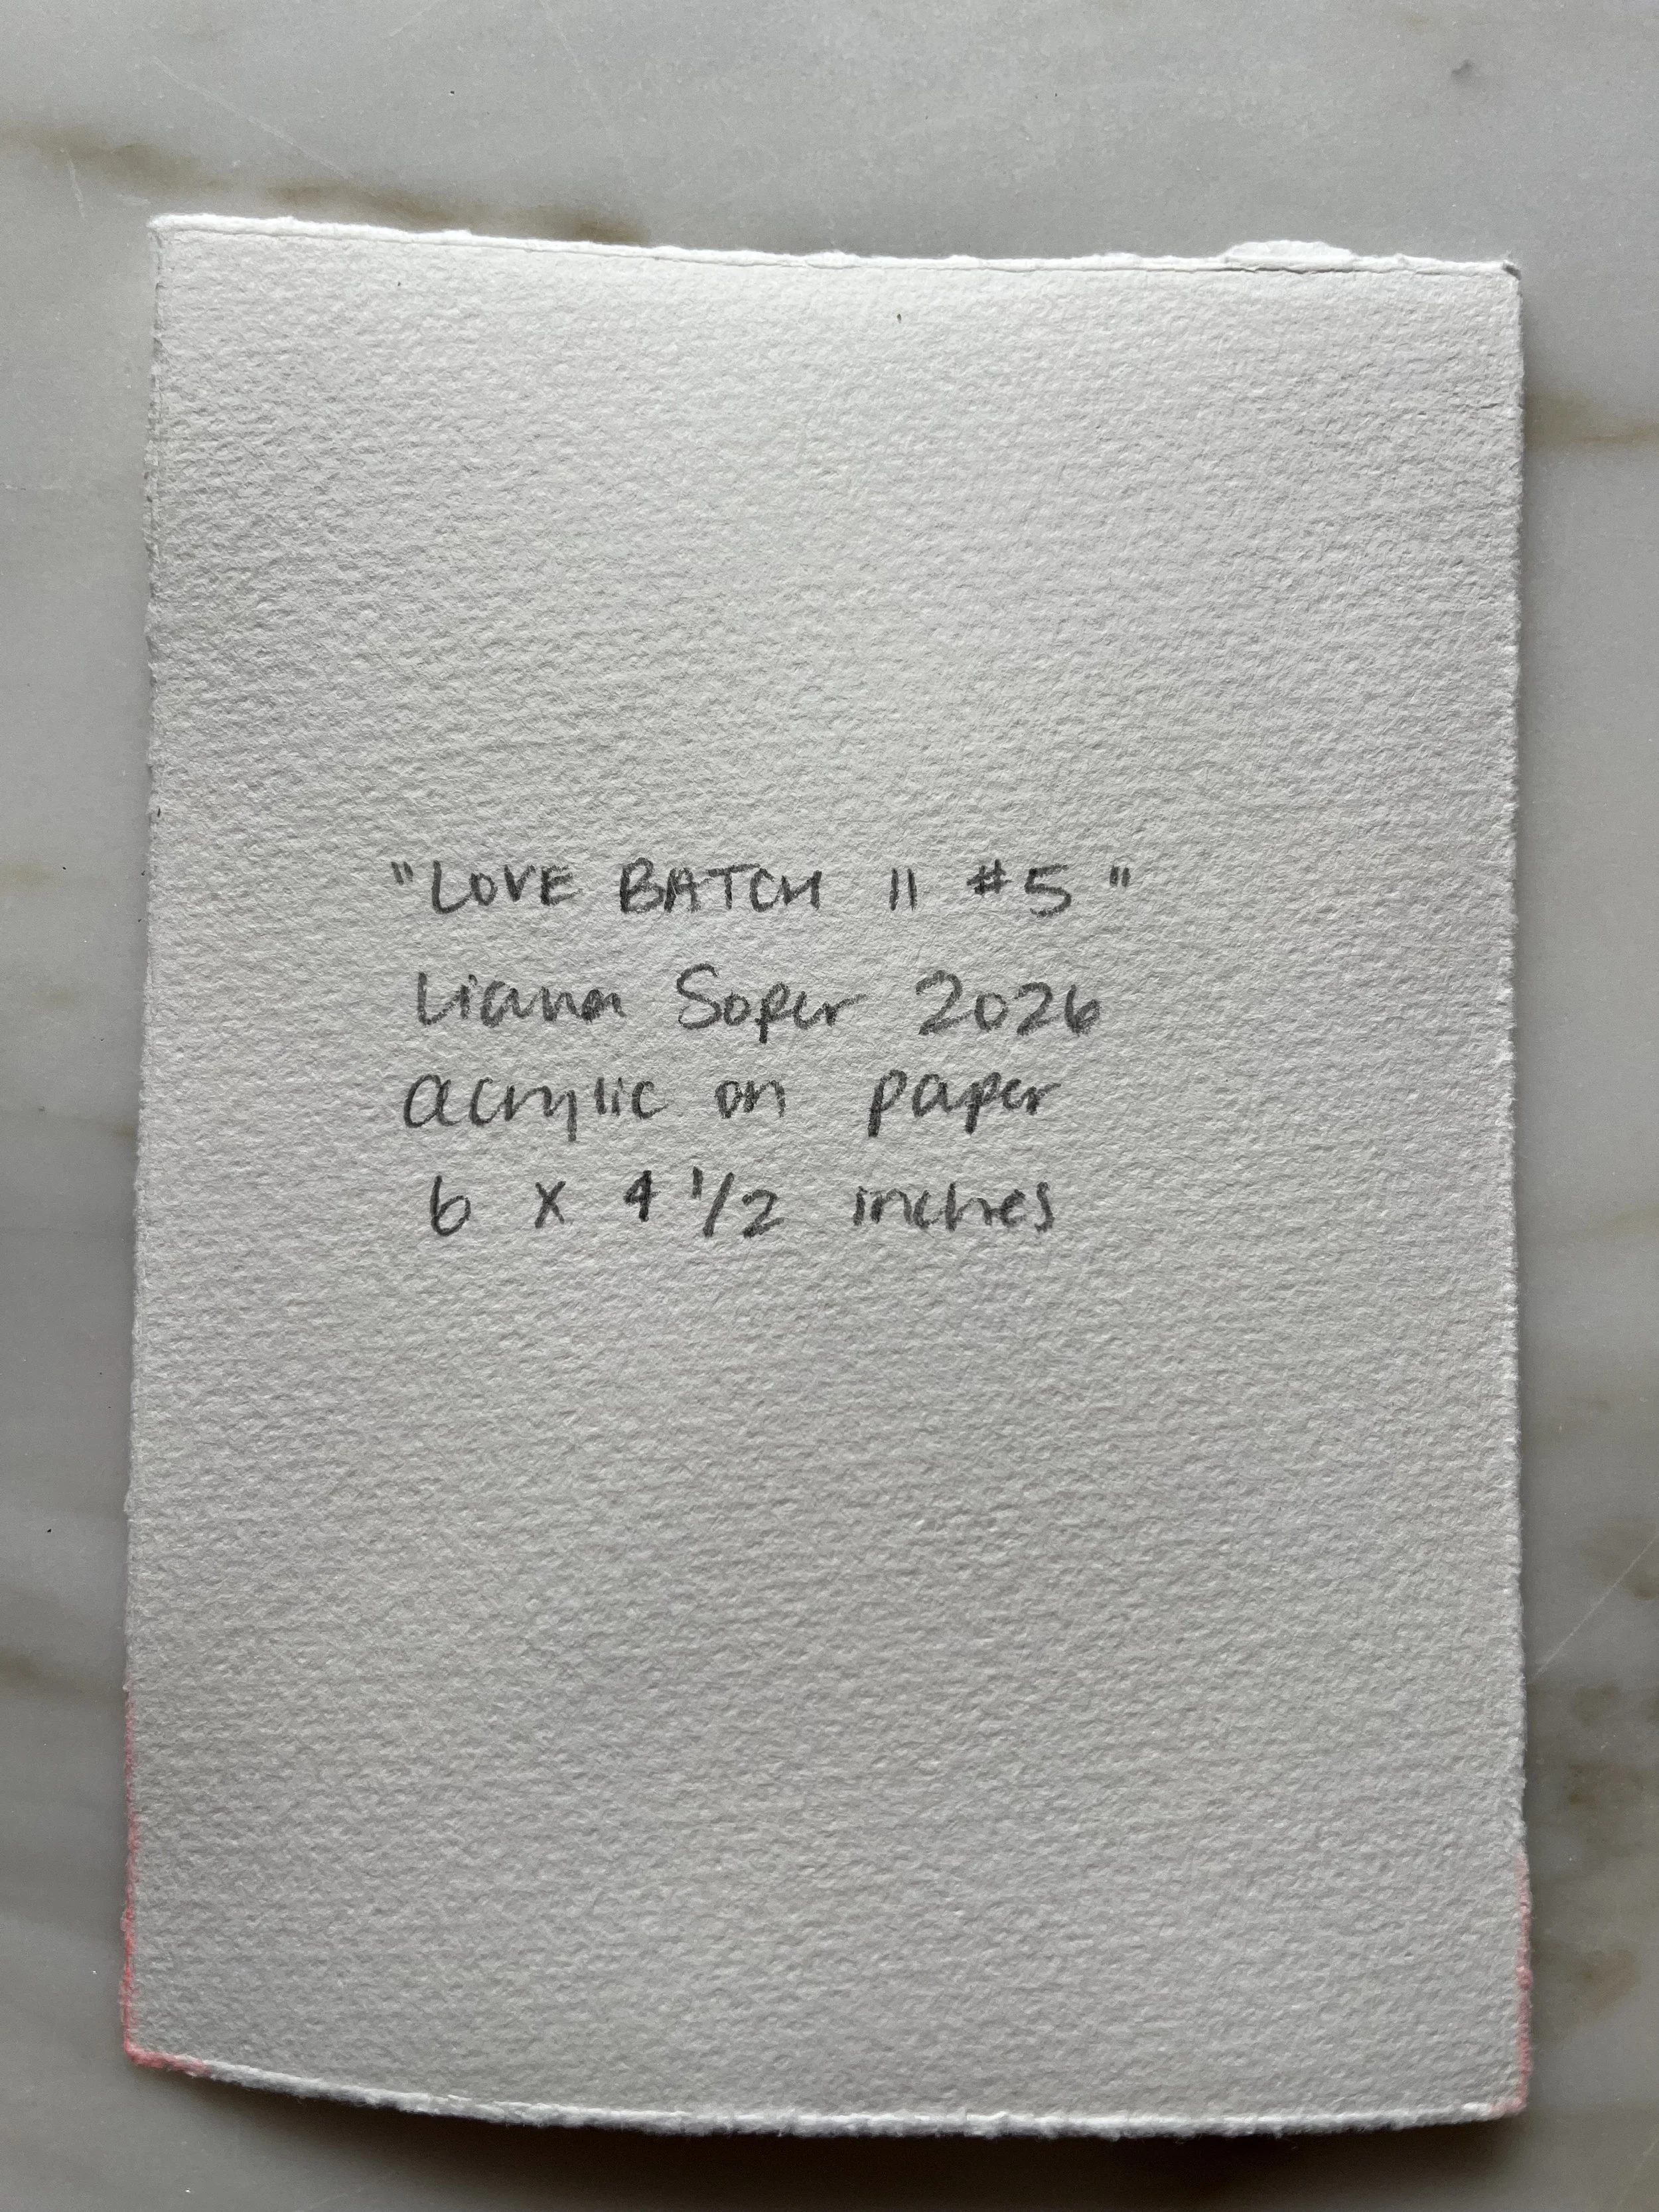 "LOVE BATCH II #5"
Liana Soper 2026
acrylic on paper
6 x 4 1/2 inches